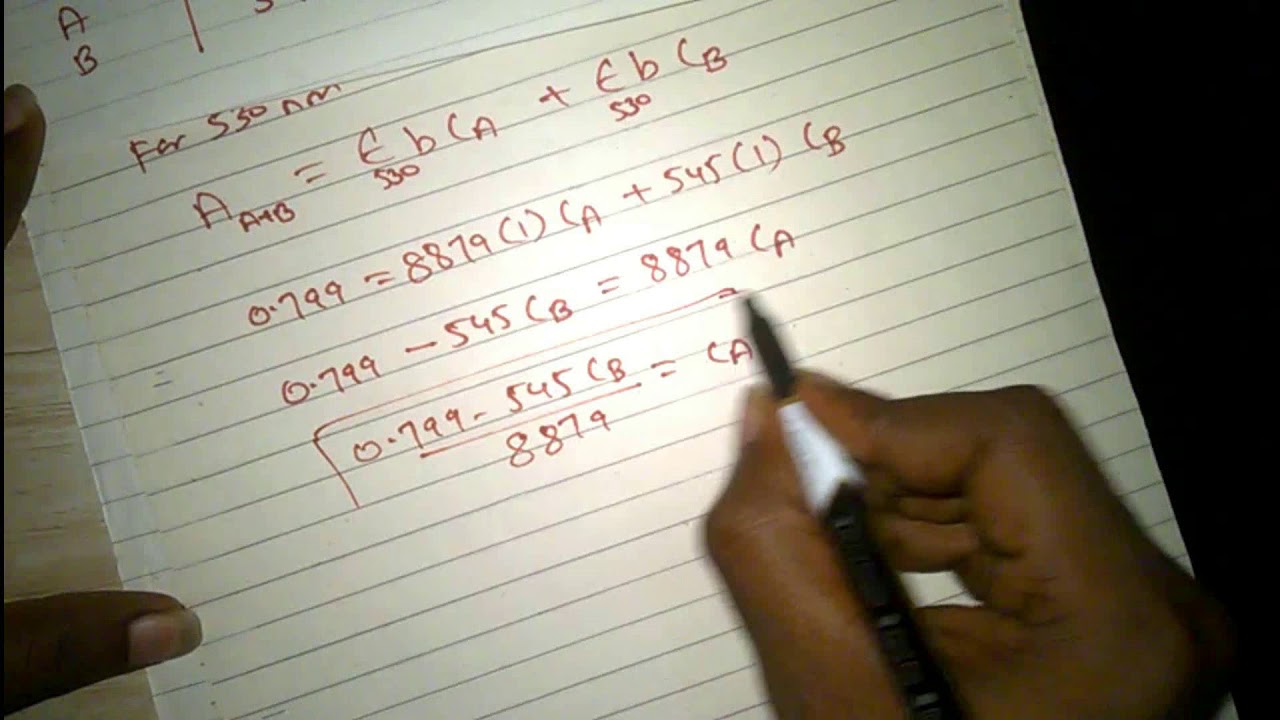 A
B
For 530 nm
A A+B = ε 530 b CA + ε 530 b CB
0.799 = 8879(1) CA + 545(1) CB
0.799 - 545 CB = 8879 CA
=
0.799 - 545 CB / 8879 = CA